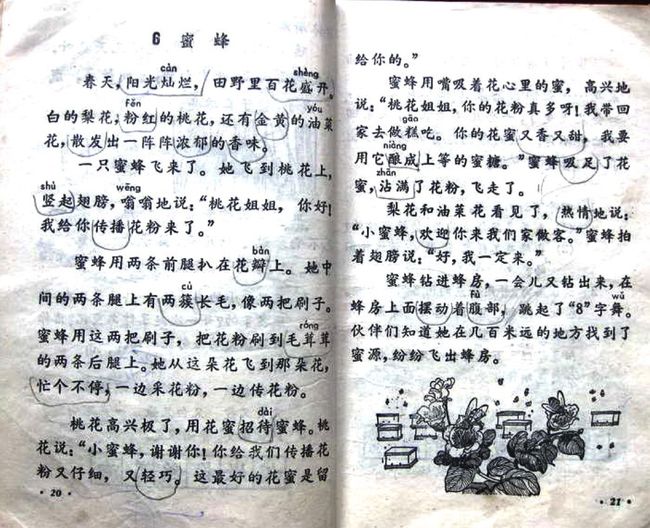 6 蜜蜂
càn shèng
春天,阳光灿烂,田野里百花盛开。
fěn yóu
白的梨花,粉红的桃花,还有金黄的油菜
花,散发出一阵阵浓郁的香味。
一只蜜蜂飞来了。她飞到桃花上,
shù wēng
竖起翅膀,嗡嗡地说:“桃花姐姐,你好!
我给你传播花粉来了。”
bàn
蜜蜂用两条前腿扒在花瓣上。她中
cù
间的两条腿上有两簇长毛,像两把刷子。
róng
蜜蜂用这两把刷子,把花粉刷到毛茸茸
的两条后腿上。她从这朵花飞到那朵花,
忙个不停,一边采花粉,一边传花粉。
dài
桃花高兴极了,用花蜜招待蜜蜂。桃
花说:“小蜜蜂,谢谢你!你给我们传播花
粉又仔细,又轻巧。这最好的花蜜是留
· 20 ·
给你的。”
蜜蜂用嘴吸着花心里的蜜,高兴地
说:“桃花姐姐,你的花粉真多呀!我带回
gāo
家去做糕吃。你的花蜜又香又甜,我要
niàng
用它酿成上等的蜜糖。”蜜蜂吸足了花
zhān
蜜,沾满了花粉,飞走了。
梨花和油菜花看见了,热情地说:
“小蜜蜂,欢迎你来我们家做客。”蜜蜂拍
着翅膀说:“好,我一定来。”
蜜蜂钻进蜂房,一会儿又钻出来,在
fù wǔ
蜂房上面摆动着腹部,跳起了“8”字舞。
伙伴们知道她在几百米远的地方找到了
蜜源,纷纷飞出蜂房。
· 21 ·